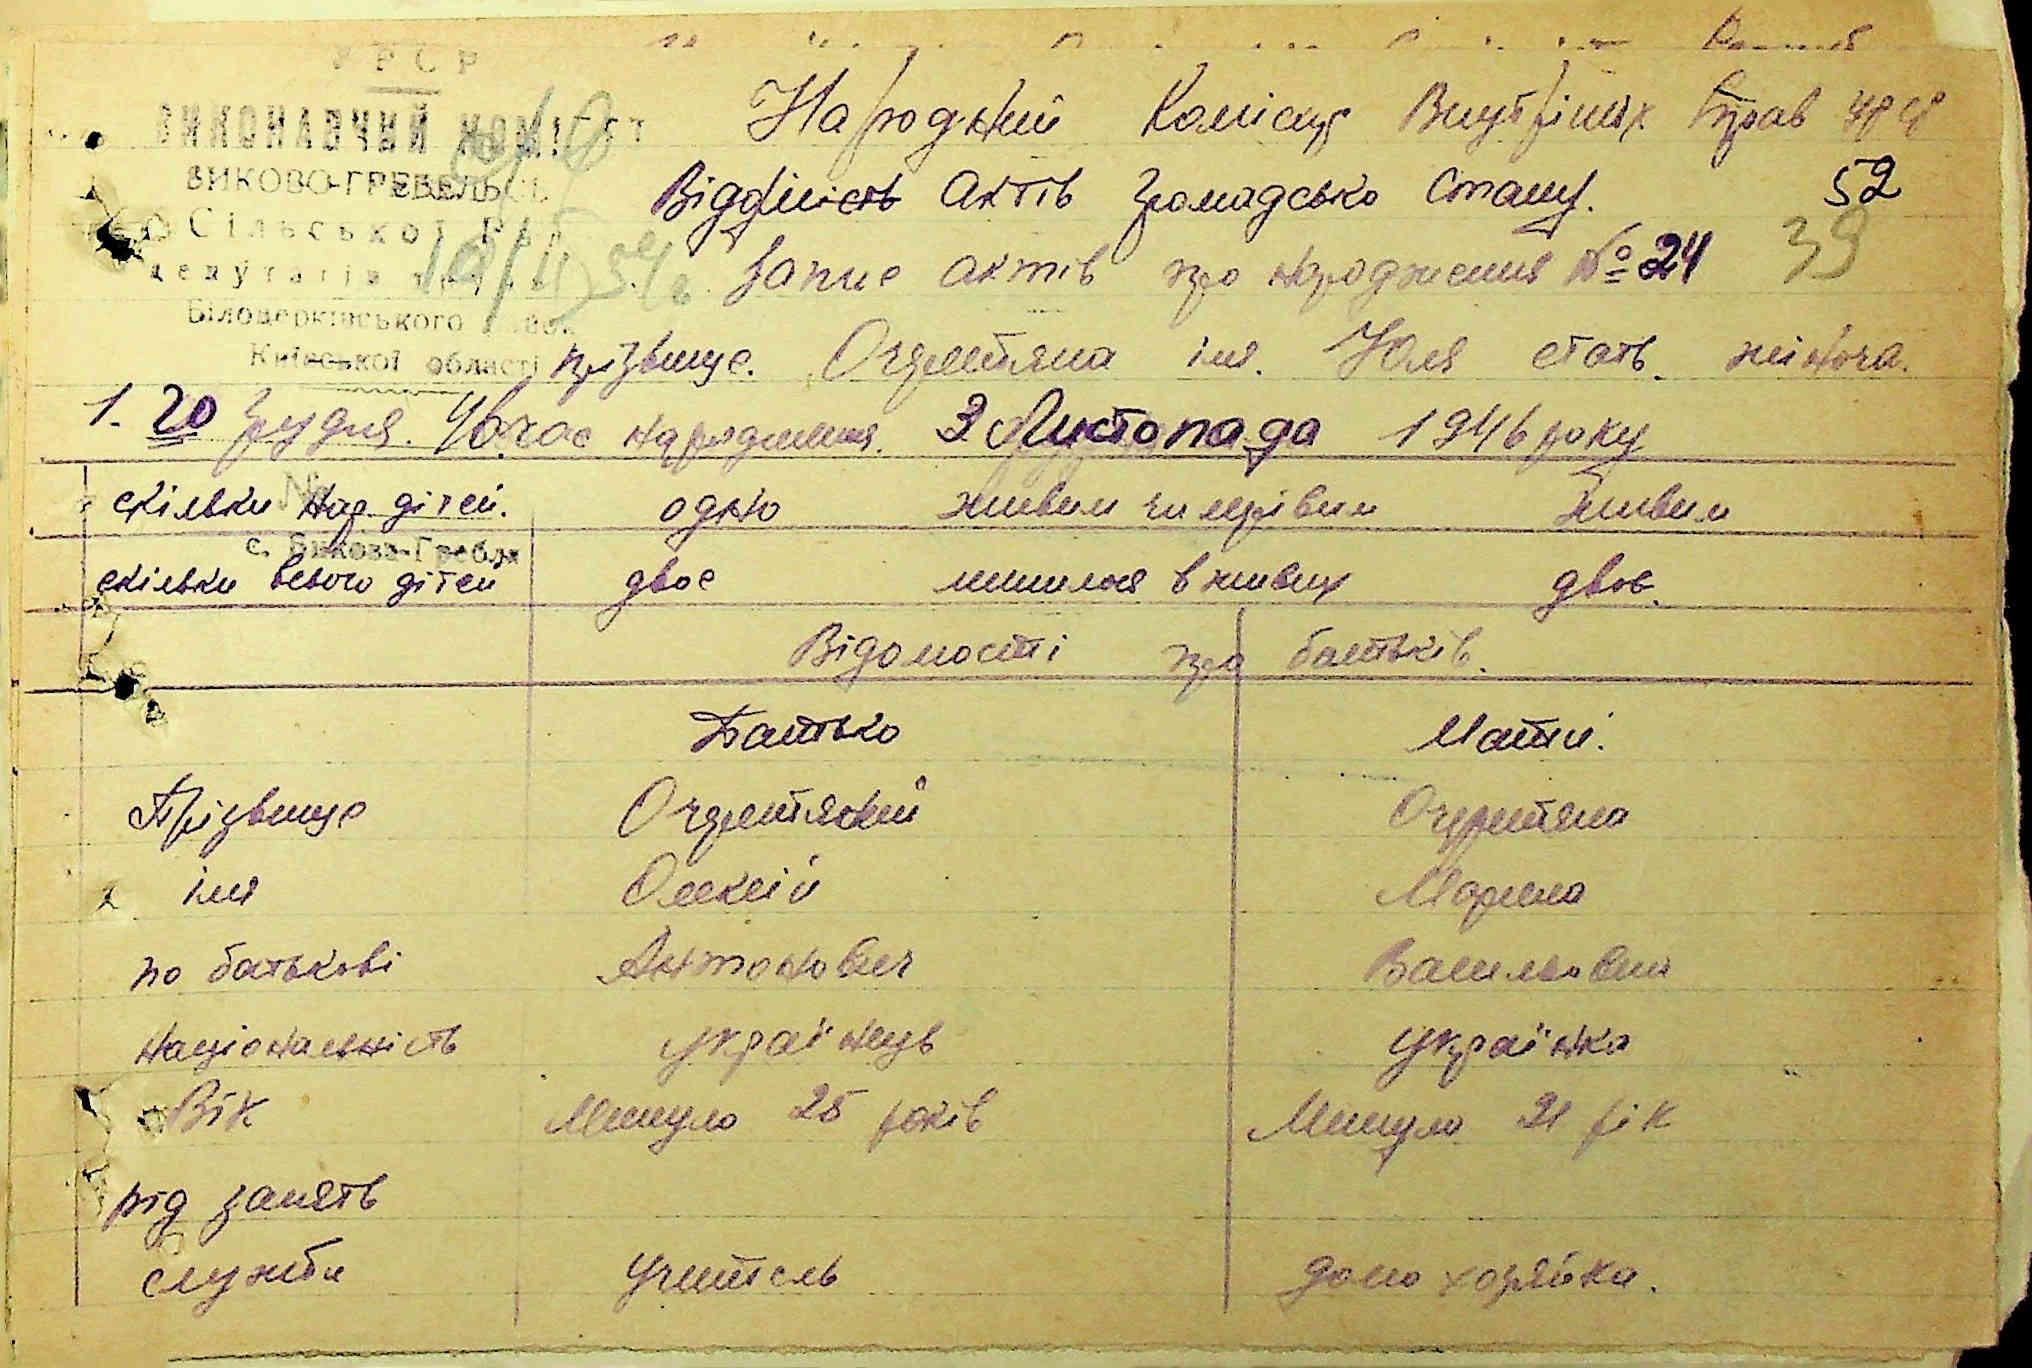 УРСР
ВИКОНАВЧИЙ КОМІТЕТ
БИКОВО-ГРЕБЕЛЬСЬ
Сільської Рад
депутатів
Білоцерківського
Київської області
№
с. Бикова-Гребля
Народний Комісар Внутрішніх Справ УРСР
Відділність Актів Громадсько Стану. 52
Запис актів про народження № 24 39
прізвище. Очеретяна імя. Юля стать. жіноча.
1. 20 грудня. 46 час народження. 3 Листопада 1946 року
скільки нар. дітей. одно живим чи мертвим живим
скільки всього дітей двоє лишилося в живих двоє.
Відомості про батьків.
Батько Мати.
Прізвище Очеретяний Очеретяна
імя Олексій Марина
по батькові Антонович Васильовна
національність українець українка
Вік Минуло 25 років Минуло 21 рік
рід занять
служби учитель домохозяйка.